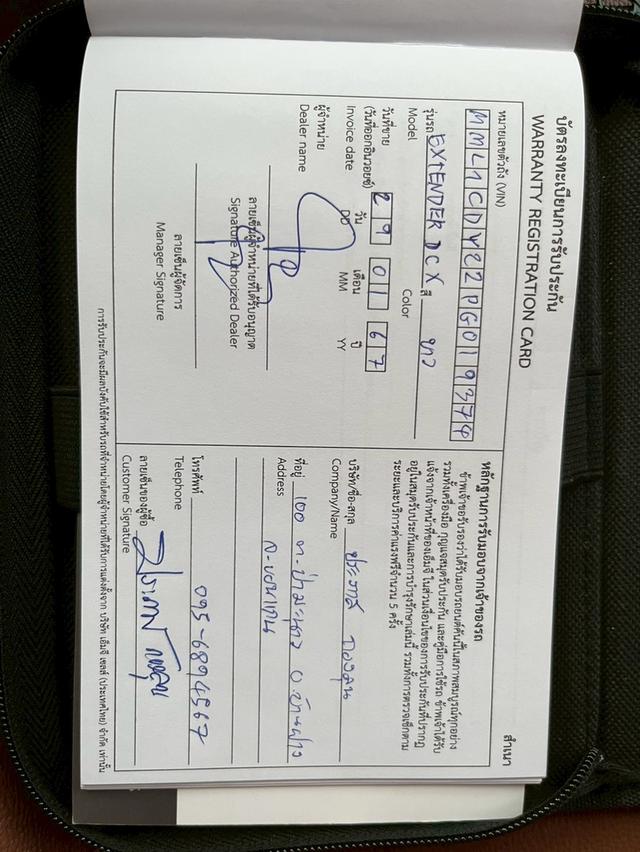 บัตรลงทะเบียนการรับประกัน
WARRANTY REGISTRATION CARD
สำเนา
หมายเลขตัวถัง (VIN)
รุ่นรถ EXTENDER DCX สี ขาว
Model Color
วันที่ขาย
(วันที่ออกอินวอยซ์) 29 01 67
Invoice date วัน เดือน ปี
DD MM YY
ผู้จำหน่าย
Dealer name
ลายเซ็นผู้จำหน่ายที่ได้รับอนุญาต
Signature Authorized Dealer
ลายเซ็นผู้จัดการ
Manager Signature
หลักฐานการรับมอบจากเจ้าของรถ
ข้าพเจ้าขอรับรองว่าได้รับมอบรถยนต์คันนี้ในสภาพสมบูรณ์ทุกอย่าง
รวมทั้งเครื่องมือ กุญแจสมุดรับประกัน และคู่มือการใช้รถ ข้าพเจ้าได้รับ
แจ้งจากเจ้าหน้าที่ของเอ็มจี ในส่วนเงื่อนไขของการรับประกันที่ปรากฏ
อยู่ในสมุดรับประกันและการบำรุงรักษาเล่มนี้ รวมทั้งการตรวจเช็กตาม
ระยะและบริการค่าแรงฟรีจำนวน 5 ครั้ง
บริษัท/ชื่อ-สกุล
Company/Name
ที่อยู่ 100 ต.ป่ามะนาว อ.บ้านฝาง
Address จ.ขอนแก่น
โทรศัพท์ 095-6894567
Telephone
ลายเซ็นของผู้ซื้อ
Customer Signature
การรับประกันจะมีผลบังคับใช้สำหรับรถที่จำหน่ายโดยผู้จำหน่ายที่ได้รับการแต่งตั้งจาก บริษัท เอ็มจี เซลส์ (ประเทศไทย) จำกัด เท่านั้น